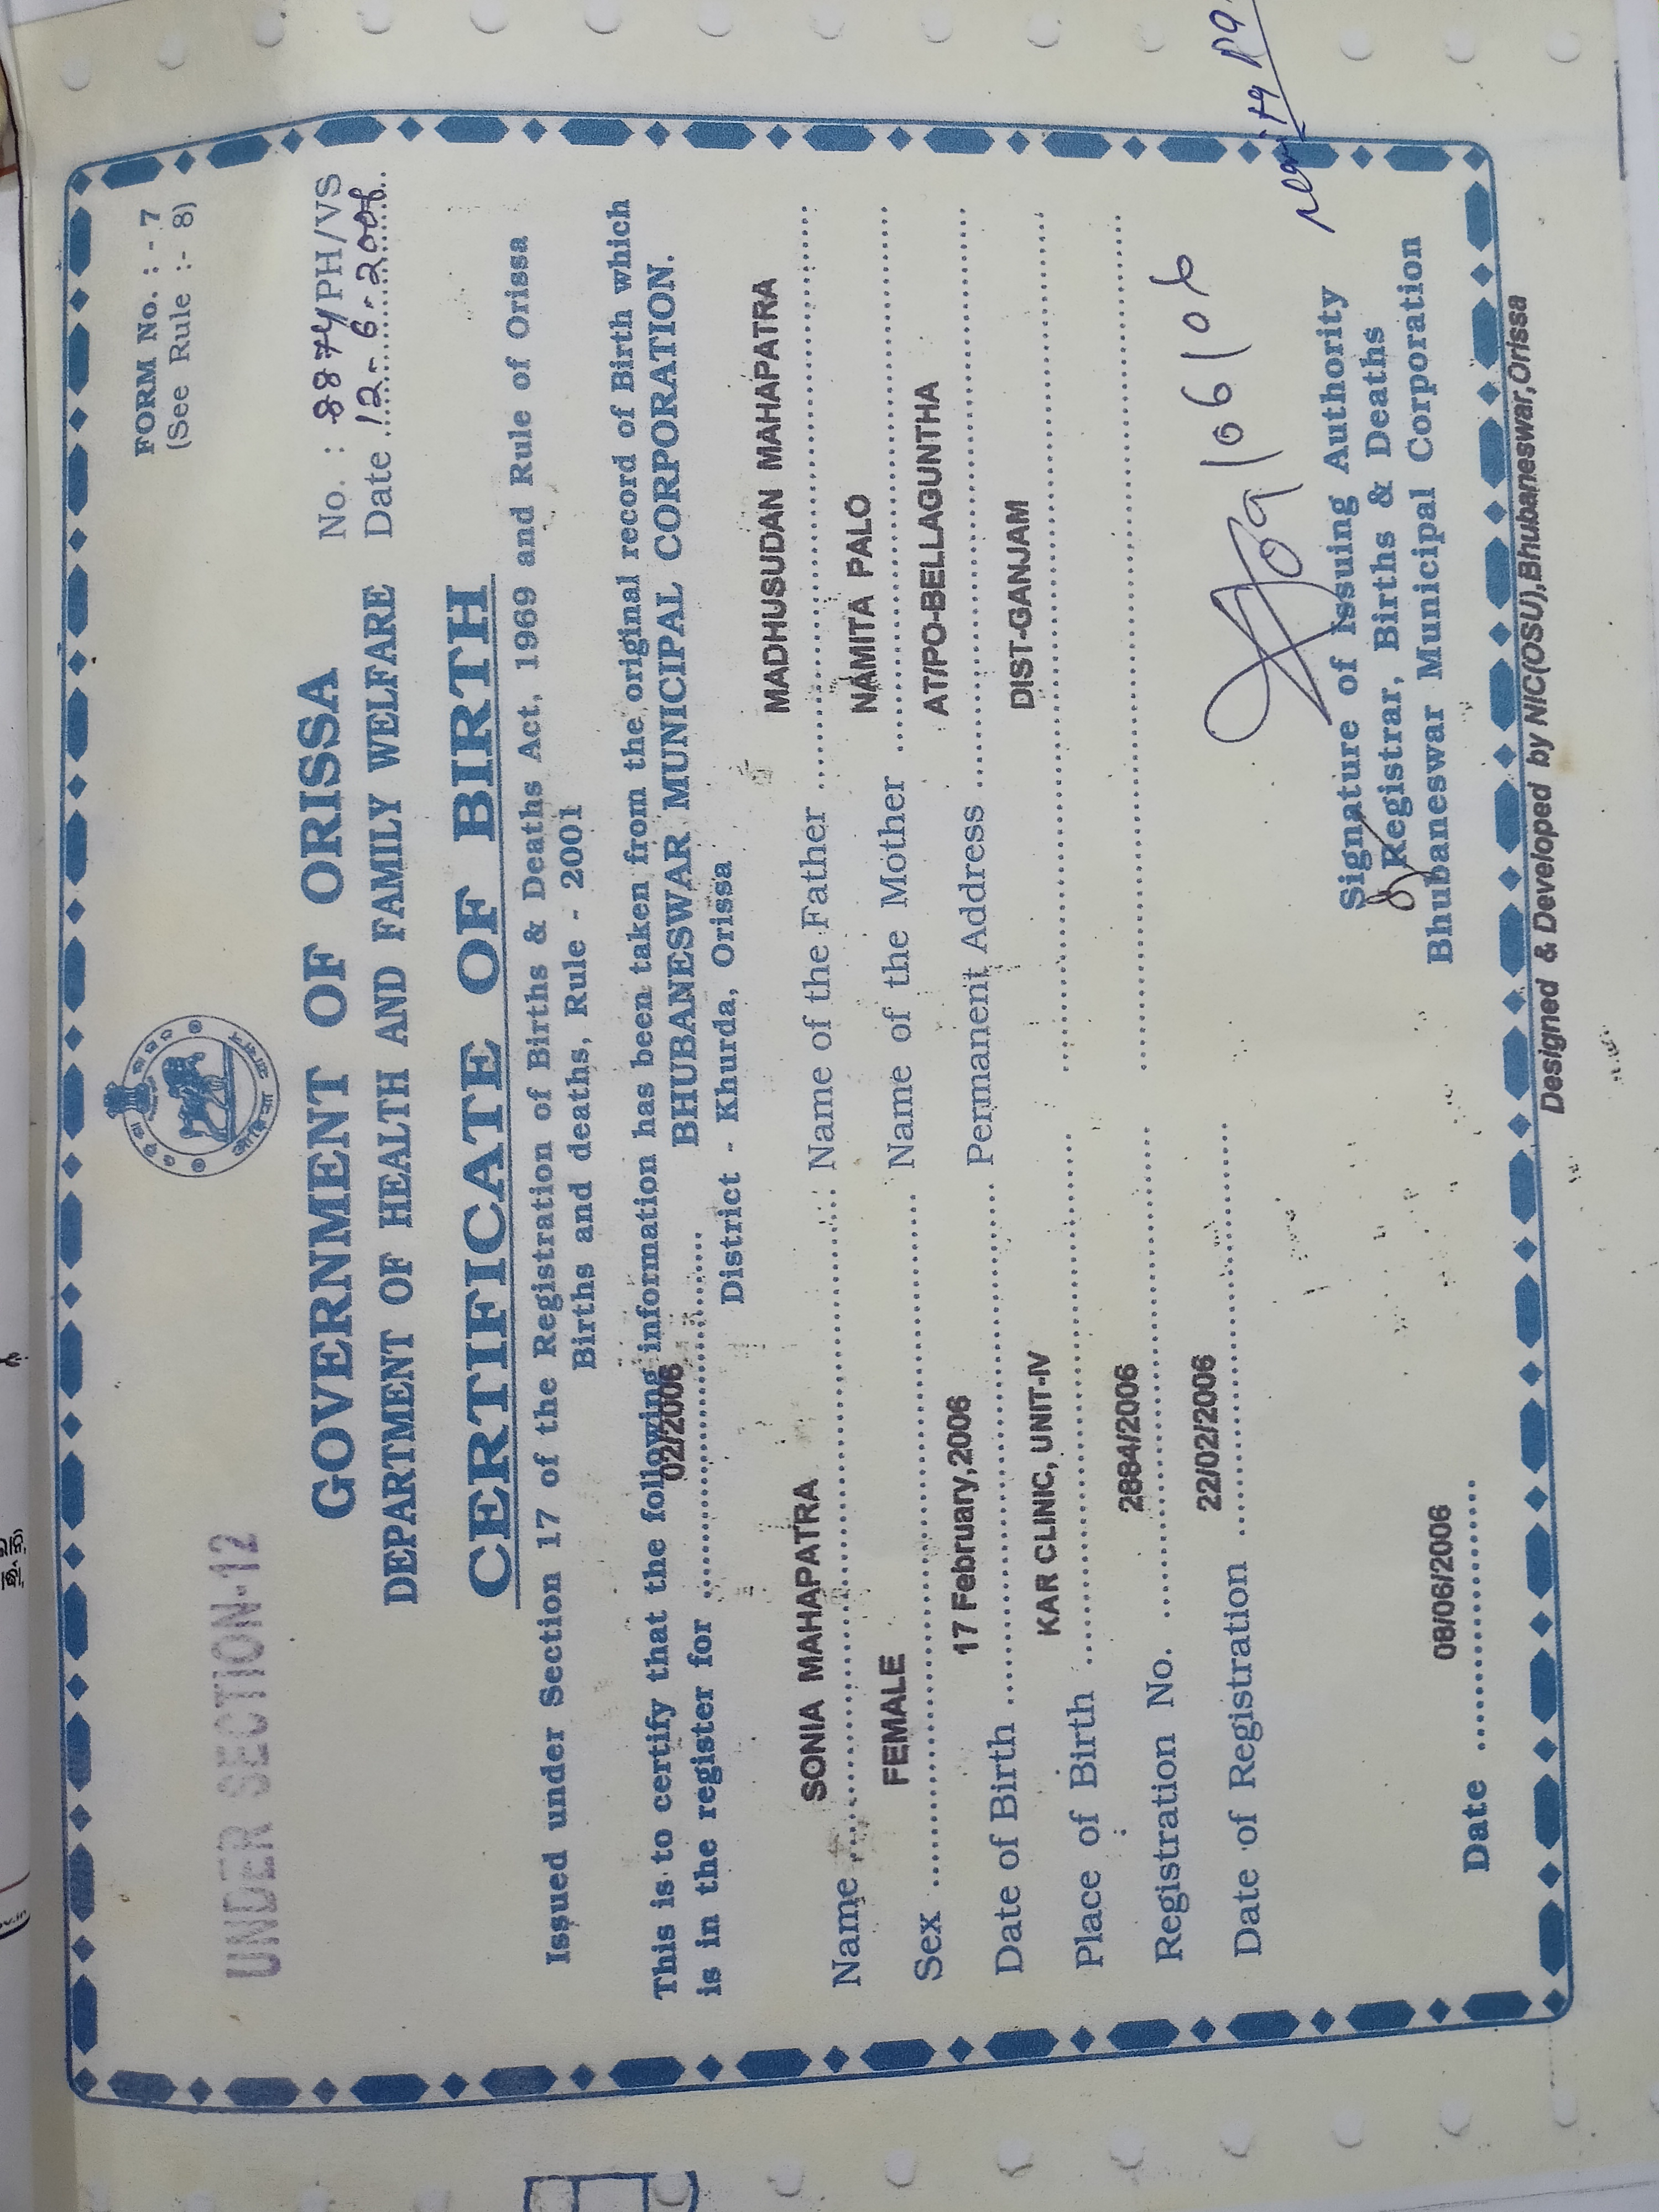 FORM No. : - 7
(See Rule :- 8)
UNDER SECTION-12
GOVERNMENT OF ORISSA
No. : 8874/PH/VS
DEPARTMENT OF HEALTH AND FAMILY WELFARE
Date 12-6-2006
CERTIFICATE OF BIRTH
Issued under Section 17 of the Registration of Births & Deaths Act, 1969 and Rule of Orissa
Births and deaths, Rule - 2001
This is to certify that the following information has been taken from the original record of Birth which
is in the register for 02/2006 BHUBANESWAR MUNICIPAL CORPORATION.
District - Khurda, Orissa
Name SONIA MAHAPATRA Name of the Father MADHUSUDAN MAHAPATRA
Sex FEMALE Name of the Mother NAMITA PALO
Date of Birth 17 February,2006 Permanent Address AT/PO-BELLAGUNTHA
Place of Birth KAR CLINIC, UNIT-IV DIST-GANJAM
Registration No. 2884/2006
Date of Registration 22/02/2006
09/06/06
Signature of Issuing Authority
Registrar, Births & Deaths
Date 08/06/2006 Bhubaneswar Municipal Corporation
Designed & Developed by NIC(OSU),Bhubaneswar,Orissa